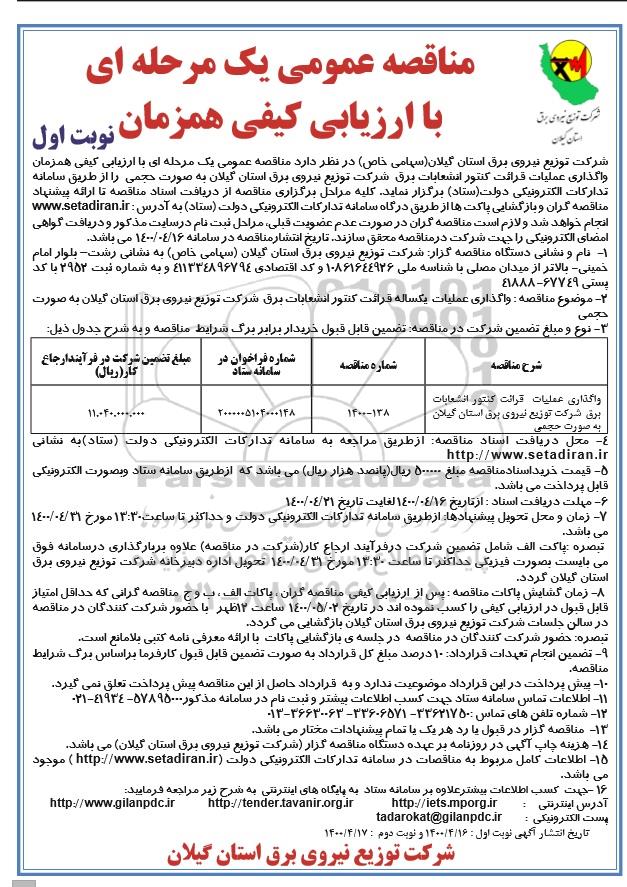 مناقصه عمومی یک مرحله ای
با ارزیابی کیفی همزمان
نوبت اول
شرکت توزیع نیروی برق
استان گیلان
شرکت توزیع نیروی برق استان گیلان(سهامی خاص) در نظر دارد مناقصه عمومی یک مرحله ای با ارزیابی کیفی همزمان
واگذاری عملیات قرائت کنتور انشعابات برق شرکت توزیع نیروی برق استان گیلان به صورت حجمی را از طریق سامانه
تدارکات الکترونیکی دولت(ستاد) برگزار نماید. کلیه مراحل برگزاری مناقصه از دریافت اسناد مناقصه تا ارائه پیشنهاد
مناقصه گران و بازگشایی پاکت ها از طریق درگاه سامانه تدارکات الکترونیکی دولت (ستاد) به آدرس : www.setadiran.ir
انجام خواهد شد و لازم است مناقصه گران در صورت عدم عضویت قبلی، مراحل ثبت نام در سایت مذکور و دریافت گواهی
امضای الکترونیکی را جهت شرکت در مناقصه محقق سازند. تاریخ انتشار مناقصه در سامانه ۱۴۰۰/۰۴/۱۶ می باشد.
۱- نام و نشانی دستگاه مناقصه گزار: شرکت توزیع نیروی برق استان گیلان (سهامی خاص) به نشانی رشت– بلوار امام
خمینی– بالاتر از میدان مصلی با شناسه ملی ۱۰۸۶۱۶۴۴۹۲۶ و کد اقتصادی ۴۱۱۳۴۸۹۶۷۹۴ و به شماره ثبت ۲۹۵۲ با کد
پستی ۶۷۷۴۹-۴۱۸۸۸
۲- موضوع مناقصه : واگذاری عملیات یکساله قرائت کنتور انشعابات برق شرکت توزیع نیروی برق استان گیلان به صورت
حجمی
۳- نوع و مبلغ تضمین شرکت در مناقصه: تضمین قابل قبول خریدار برابر برگ شرایط مناقصه و به شرح جدول ذیل:
شرح مناقصه
شماره مناقصه
شماره فراخوان در
سامانه ستاد
مبلغ تضمین شرکت در فرآیند ارجاع
کار(ریال)
واگذاری عملیات قرائت کنتور انشعابات
برق شرکت توزیع نیروی برق استان گیلان
به صورت حجمی
۱۴۰۰-۱۳۸
۲۰۰۰۰۰۵۱۰۴۰۰۰۱۴۸
۱۱.۰۴۰.۰۰۰.۰۰۰
۴- محل دریافت اسناد مناقصه: از طریق مراجعه به سامانه تدارکات الکترونیکی دولت (ستاد) به نشانی
http://www.setadiran.ir
۵- قیمت خرید اسناد مناقصه مبلغ ۵۰۰۰۰۰ ریال(پانصد هزار ریال) می باشد که از طریق سامانه ستاد و بصورت الکترونیکی
قابل پرداخت می باشد.
۶- مهلت دریافت اسناد : از تاریخ ۱۴۰۰/۰۴/۱۶ لغایت تاریخ ۱۴۰۰/۰۴/۲۱
۷- زمان و محل تحویل پیشنهادها: از طریق سامانه تدارکات الکترونیکی دولت و حداکثر تا ساعت ۱۳:۳۰ مورخ ۱۴۰۰/۰۴/۳۱
می باشد.
تبصره :پاکت الف شامل تضمین شرکت در فرآیند ارجاع کار(شرکت در مناقصه) علاوه بر بارگذاری در سامانه فوق
می بایست بصورت فیزیکی حداکثر تا ساعت ۱۳:۳۰ مورخ ۱۴۰۰/۰۴/۳۱ تحویل اداره دبیرخانه شرکت توزیع نیروی برق
استان گیلان گردد.
۸- زمان گشایش پاکات مناقصه : پس از ارزیابی کیفی مناقصه گران ، پاکات الف ، ب و ج مناقصه گرانی که حداقل امتیاز
قابل قبول در ارزیابی کیفی را کسب نموده اند در تاریخ ۱۴۰۰/۰۵/۰۲ ساعت ۱۲ظهر با حضور شرکت کنندگان در مناقصه
در سالن جلسات شرکت توزیع نیروی برق استان گیلان بازگشایی می گردد.
تبصره: حضور شرکت کنندگان در مناقصه در جلسه ی بازگشایی پاکات با ارائه معرفی نامه کتبی بلامانع است.
۹- تضمین انجام تعهدات قرارداد: ۱۰ درصد مبلغ کل قرارداد به صورت تضمین قابل قبول کارفرما براساس برگ شرایط
مناقصه.
۱۰- پیش پرداخت در این قرارداد موضوعیت ندارد و به قرارداد حاصل از این مناقصه پیش پرداخت تعلق نمی گیرد.
۱۱- اطلاعات تماس سامانه ستاد جهت کسب اطلاعات بیشتر و ثبت نام در سامانه مذکور ۵۷۸۹۵۰۰۰- ۴۱۹۳۴-۰۲۱
۱۲- شماره تلفن های تماس : ۳۳۶۲۱۷۵۰- ۳۳۶۰۶۵۷۱- ۳۶۶۳۰۰۶۳-۰۱۳
۱۳- مناقصه گزار در قبول یا رد هر یک یا تمام پیشنهادات مختار می باشد.
۱۴- هزینه چاپ آگهی در روزنامه بر عهده دستگاه مناقصه گزار (شرکت توزیع نیروی برق استان گیلان) می باشد.
۱۵- اطلاعات کامل مربوط به مناقصات در سامانه تدارکات الکترونیکی دولت (http://www.setadiran.ir ) موجود
می باشد.
۱۶-جهت کسب اطلاعات بیشتر علاوه بر سامانه ستاد به پایگاه های اینترنتی به شرح زیر مراجعه فرمایید:
آدرس اینترنتی : http://iets.mporg.ir http://tender.tavanir.org.ir http://www.gilanpdc.ir
پست الکترونیکی : tadarokat@gilanpdc.ir
تاریخ انتشار آگهی نوبت اول : ۱۴۰۰/۴/۱۶ و نوبت دوم : ۱۴۰۰/۴/۱۷
شرکت توزیع نیروی برق استان گیلان